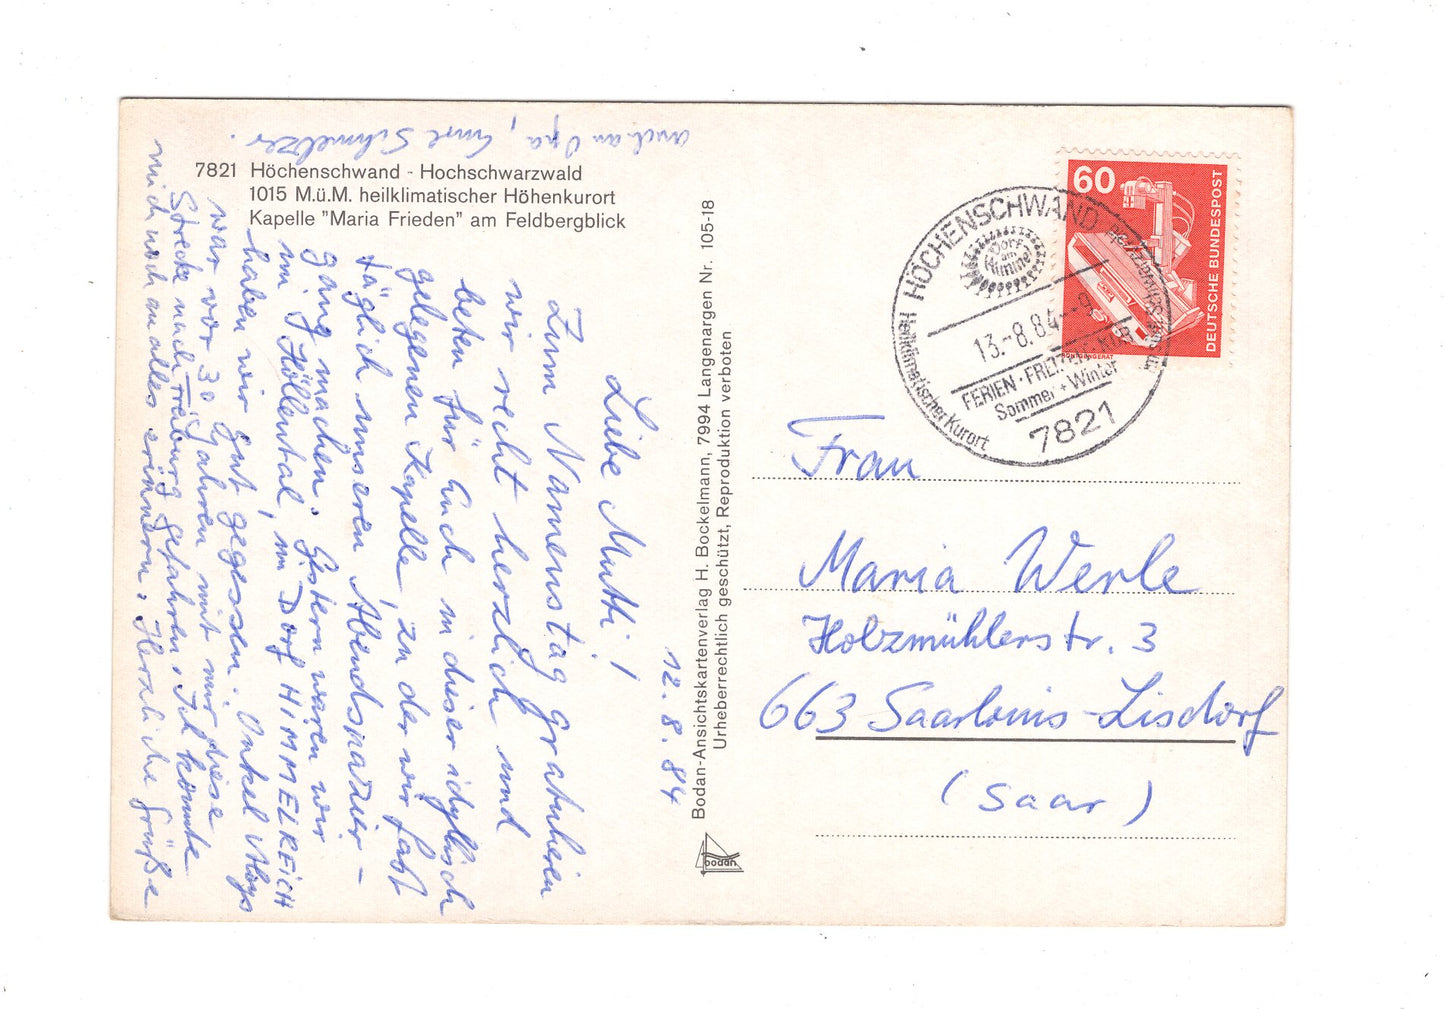 7821 Höchenschwand - Hochschwarzwald
1015 M.ü.M. heilklimatischer Höhenkurort
Kapelle "Maria Frieden" am Feldbergblick
12.8.84
Liebe Mutti!
Zum Namenstag gratulieren
wir recht herzlich und
beten für Euch in dieser idyllisch
gelegenen Kapelle, zu der wir fast
täglich unseren Abendspazier-
gang machen. Gestern waren wir
im Höllental, im Dorf HIMMELREICH
haben wir gut gegessen. Onkel Aloys
war vor 30 Jahren mit mir diese
Strecke nach Freiburg gefahren. Ich konnte
mich noch an alles erinnern. Herzliche Grüße
auch an Opa, Schmelzer.
Bodan-Ansichtskartenverlag H. Bockelmann, 7994 Langenargen Nr. 105-18
Urheberrechtlich geschützt, Reproduktion verboten
bodan
HÖCHENSCHWAND
Dorf
am
Himmel
13.-8.84
FERIEN · FREIZEIT · KUR
Sommer + Winter
7821
Heilklimatischer Kurort
60
DEUTSCHE BUNDESPOST
RÖNTGENGERÄT
Frau
Maria Werle
Holzmühlerstr. 3
663 Saarlouis-Lisdorf
(Saar)